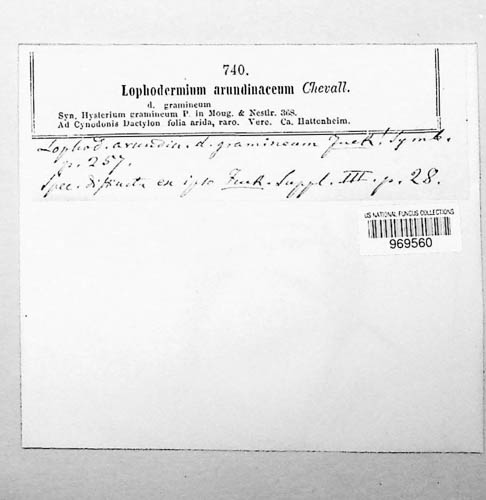 740.
Lophodermium arundinaceum Chevall.
d. gramineum
Syn. Hysterium gramineum P. in Moug. & Nestlr. 368.
Ad Cynodonis Dactylon folia arida, raro. Vere. Ca. Hattenheim.
Lophod. arundin. d. gramineum Fuck! Symb.
p. 257.
Spec. distincta ex ipso Fuck. Suppl. III. p. 28.
US NATIONAL FUNGUS COLLECTIONS
969560